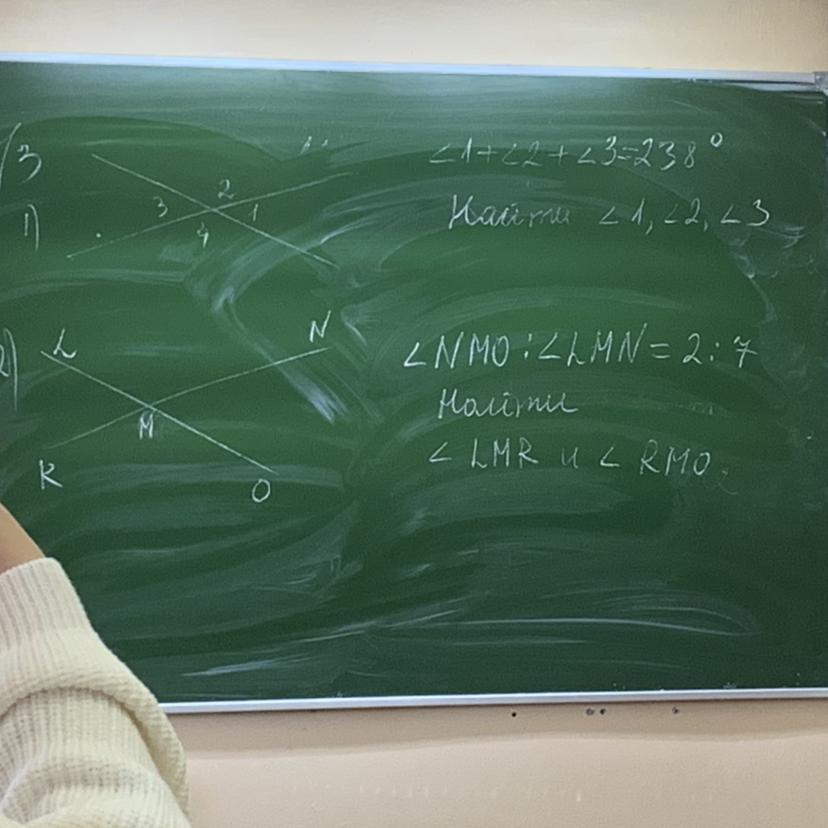 /3
1)
3 2 1
4
∠1+∠2+∠3=238°
Найти ∠1,∠2,∠3
2)
L N
M
R O
∠NMO:∠LMN=2:7
Найти
∠LMR и ∠RMO